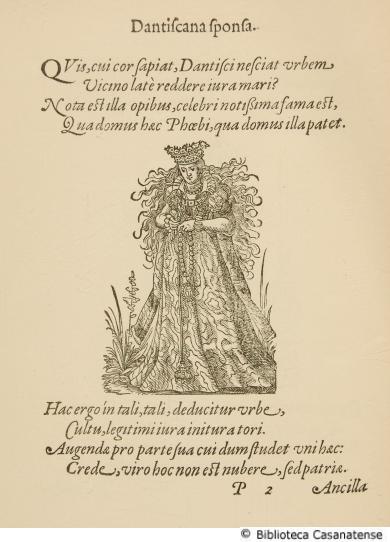 Dantiscana sponsa.
QVis, cui cor sapiat, Dantisci nesciat vrbem
Vicino latè reddere iura mari?
Nota est illa opibus, celebri notißima fama est,
Qua domus hæc Phœbi, qua domus illa patet.
Hac ergo in tali, tali, deducitur vrbe,
Cultu, legitimi iura initura tori.
Augendæ pro parte sua cui dum studet vni hæc:
Crede, viro hoc non est nubere, sed patriæ.
P 2 Ancilla
© Biblioteca Casanatense